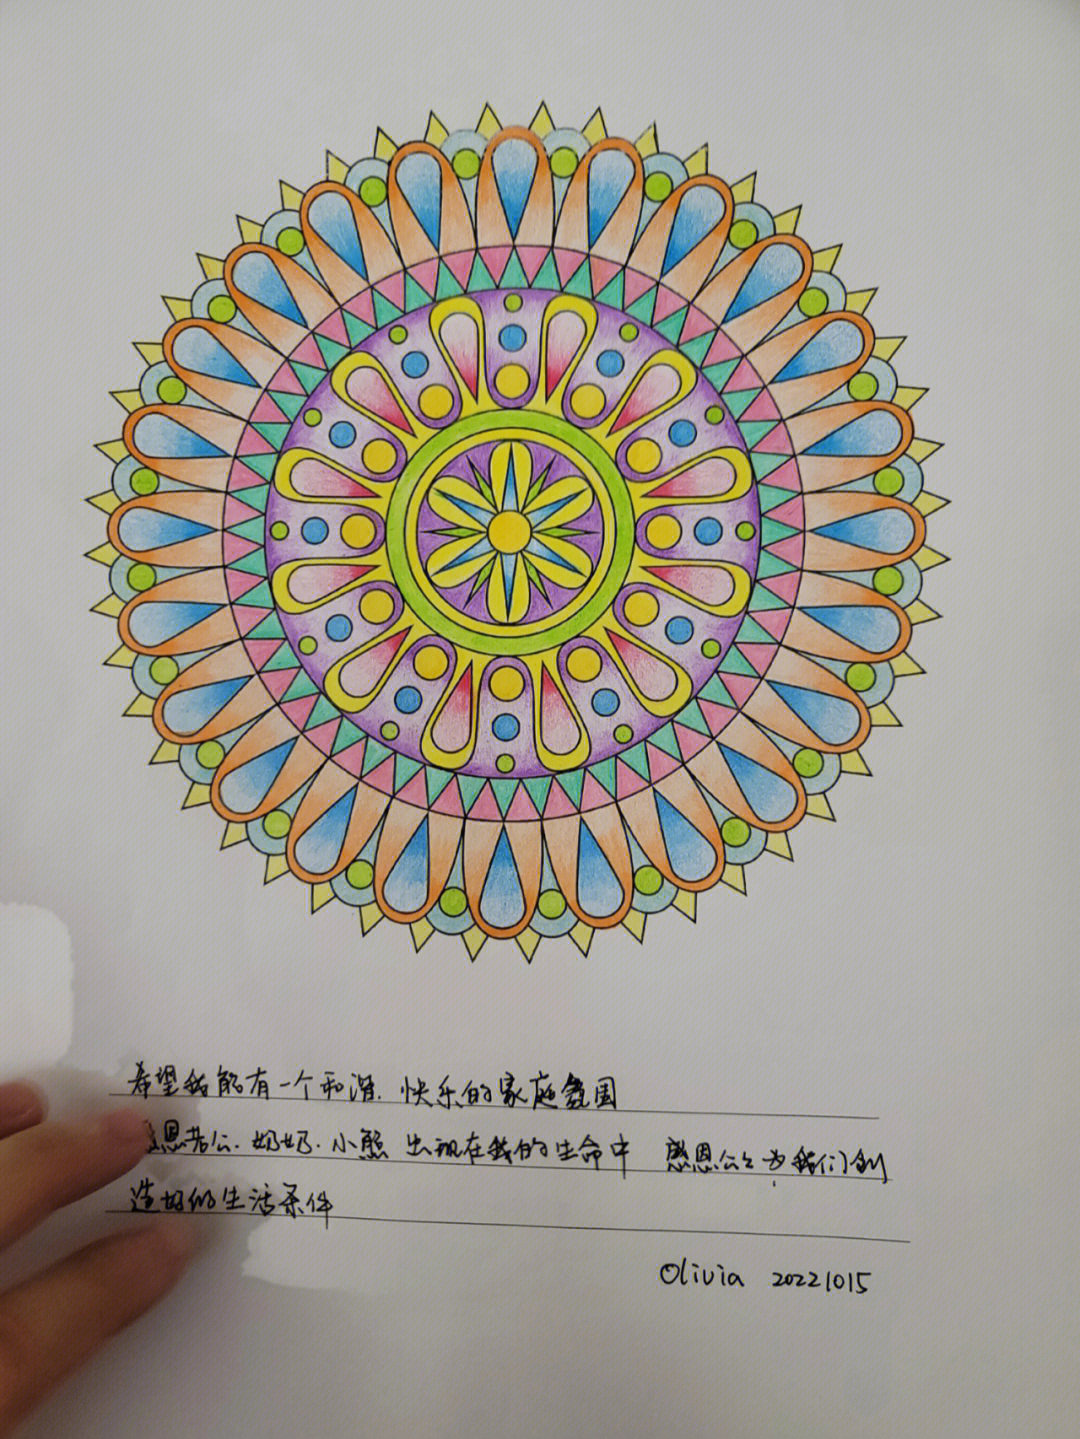 希望我能有一个和谐.快乐的家庭氛围
感恩老公.奶奶.小熊 出现在我的生命中 感恩公公为我们创
造好的生活条件
Olivia 20221015